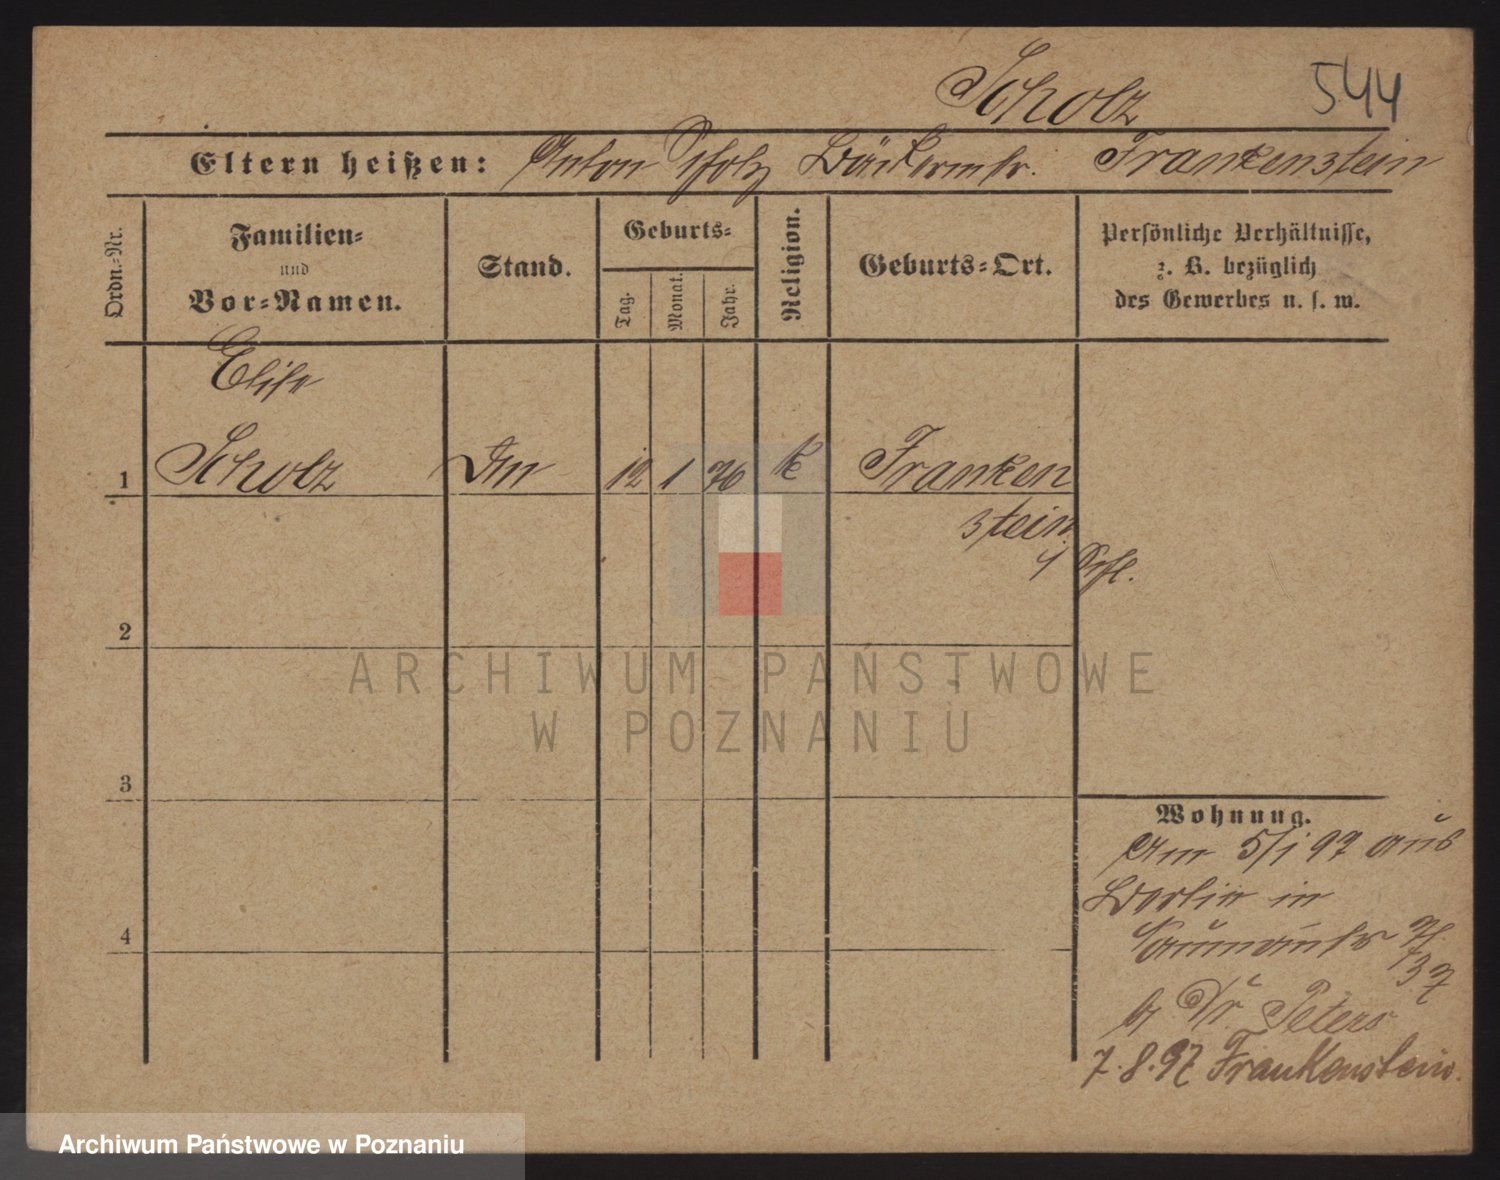 Scholz 544
Eltern heißen: Anton Scholz Bäckermstr. Frankenstein
Ordn.-Nr.
Familien-
und
Vor-Namen.
Stand.
Geburts-
Tag.
Monat.
Jahr.
Religion.
Geburts-Ort.
Persönliche Verhältnisse,
z. B. bezüglich
des Gewerbes u. s. w.
Elise
1 Scholz 12 1 76 k Franken
stein
Schl.
2
3
4
Wohnung.
Am 5/1 97 aus
Berlin in
Naumannstr
37
b/ Dr. Peters
7.8.97 Frankenstein.
ARCHIWUM PAŃSTWOWE
W POZNANIU
Archiwum Państwowe w Poznaniu